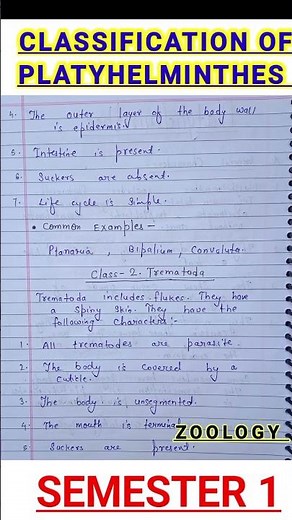 CLASSIFICATION OF
PLATYHELMINTHES
4. The outer layer of the body wall
is epidermis.
5. Intestine is present.
6. Suckers are absent.
7. Life cycle is simple.
• Common Examples –
Planaria, Bipalium, Convoluta.
Class-2. Trematoda
Trematoda includes flukes. They have
a spiny skin. They have the
following characters :-
1. All trematodes are parasite.
2. The body is covered by a
cuticle.
3. The body is unsegmented.
4. The mouth is terminal
ZOOLOGY
5. Suckers are present.
SEMESTER 1